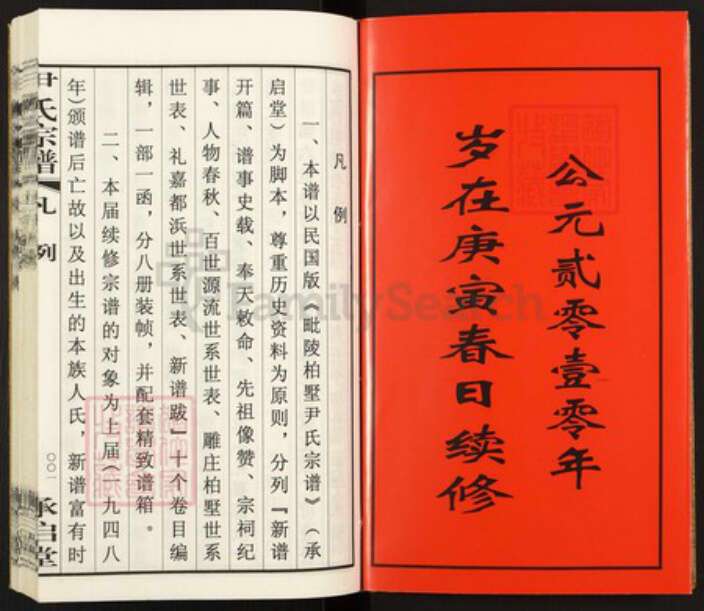 公元贰零壹零年
岁在庚寅春日续修
凡例
一、本谱以民国版《毗陵柏墅尹氏宗谱》（承
启堂）为脚本，尊重历史资料为原则，分列『新谱
开篇、谱事史载、奉天敕命、先祖像赞、宗祠纪
事、人物春秋、百世源流世系世表、雕庄柏墅世系
世表、礼嘉都浜世系世表、新谱跋』十个卷目编
辑，一部一函，分八册装帧，并配套精致谱箱。
二、本届续修宗谱的对象为上届（一九四八
年）颁谱后亡故以及出生的本族人氏，新谱富有时
尹氏宗谱
凡例
〇〇一
承启堂
FamilySearch